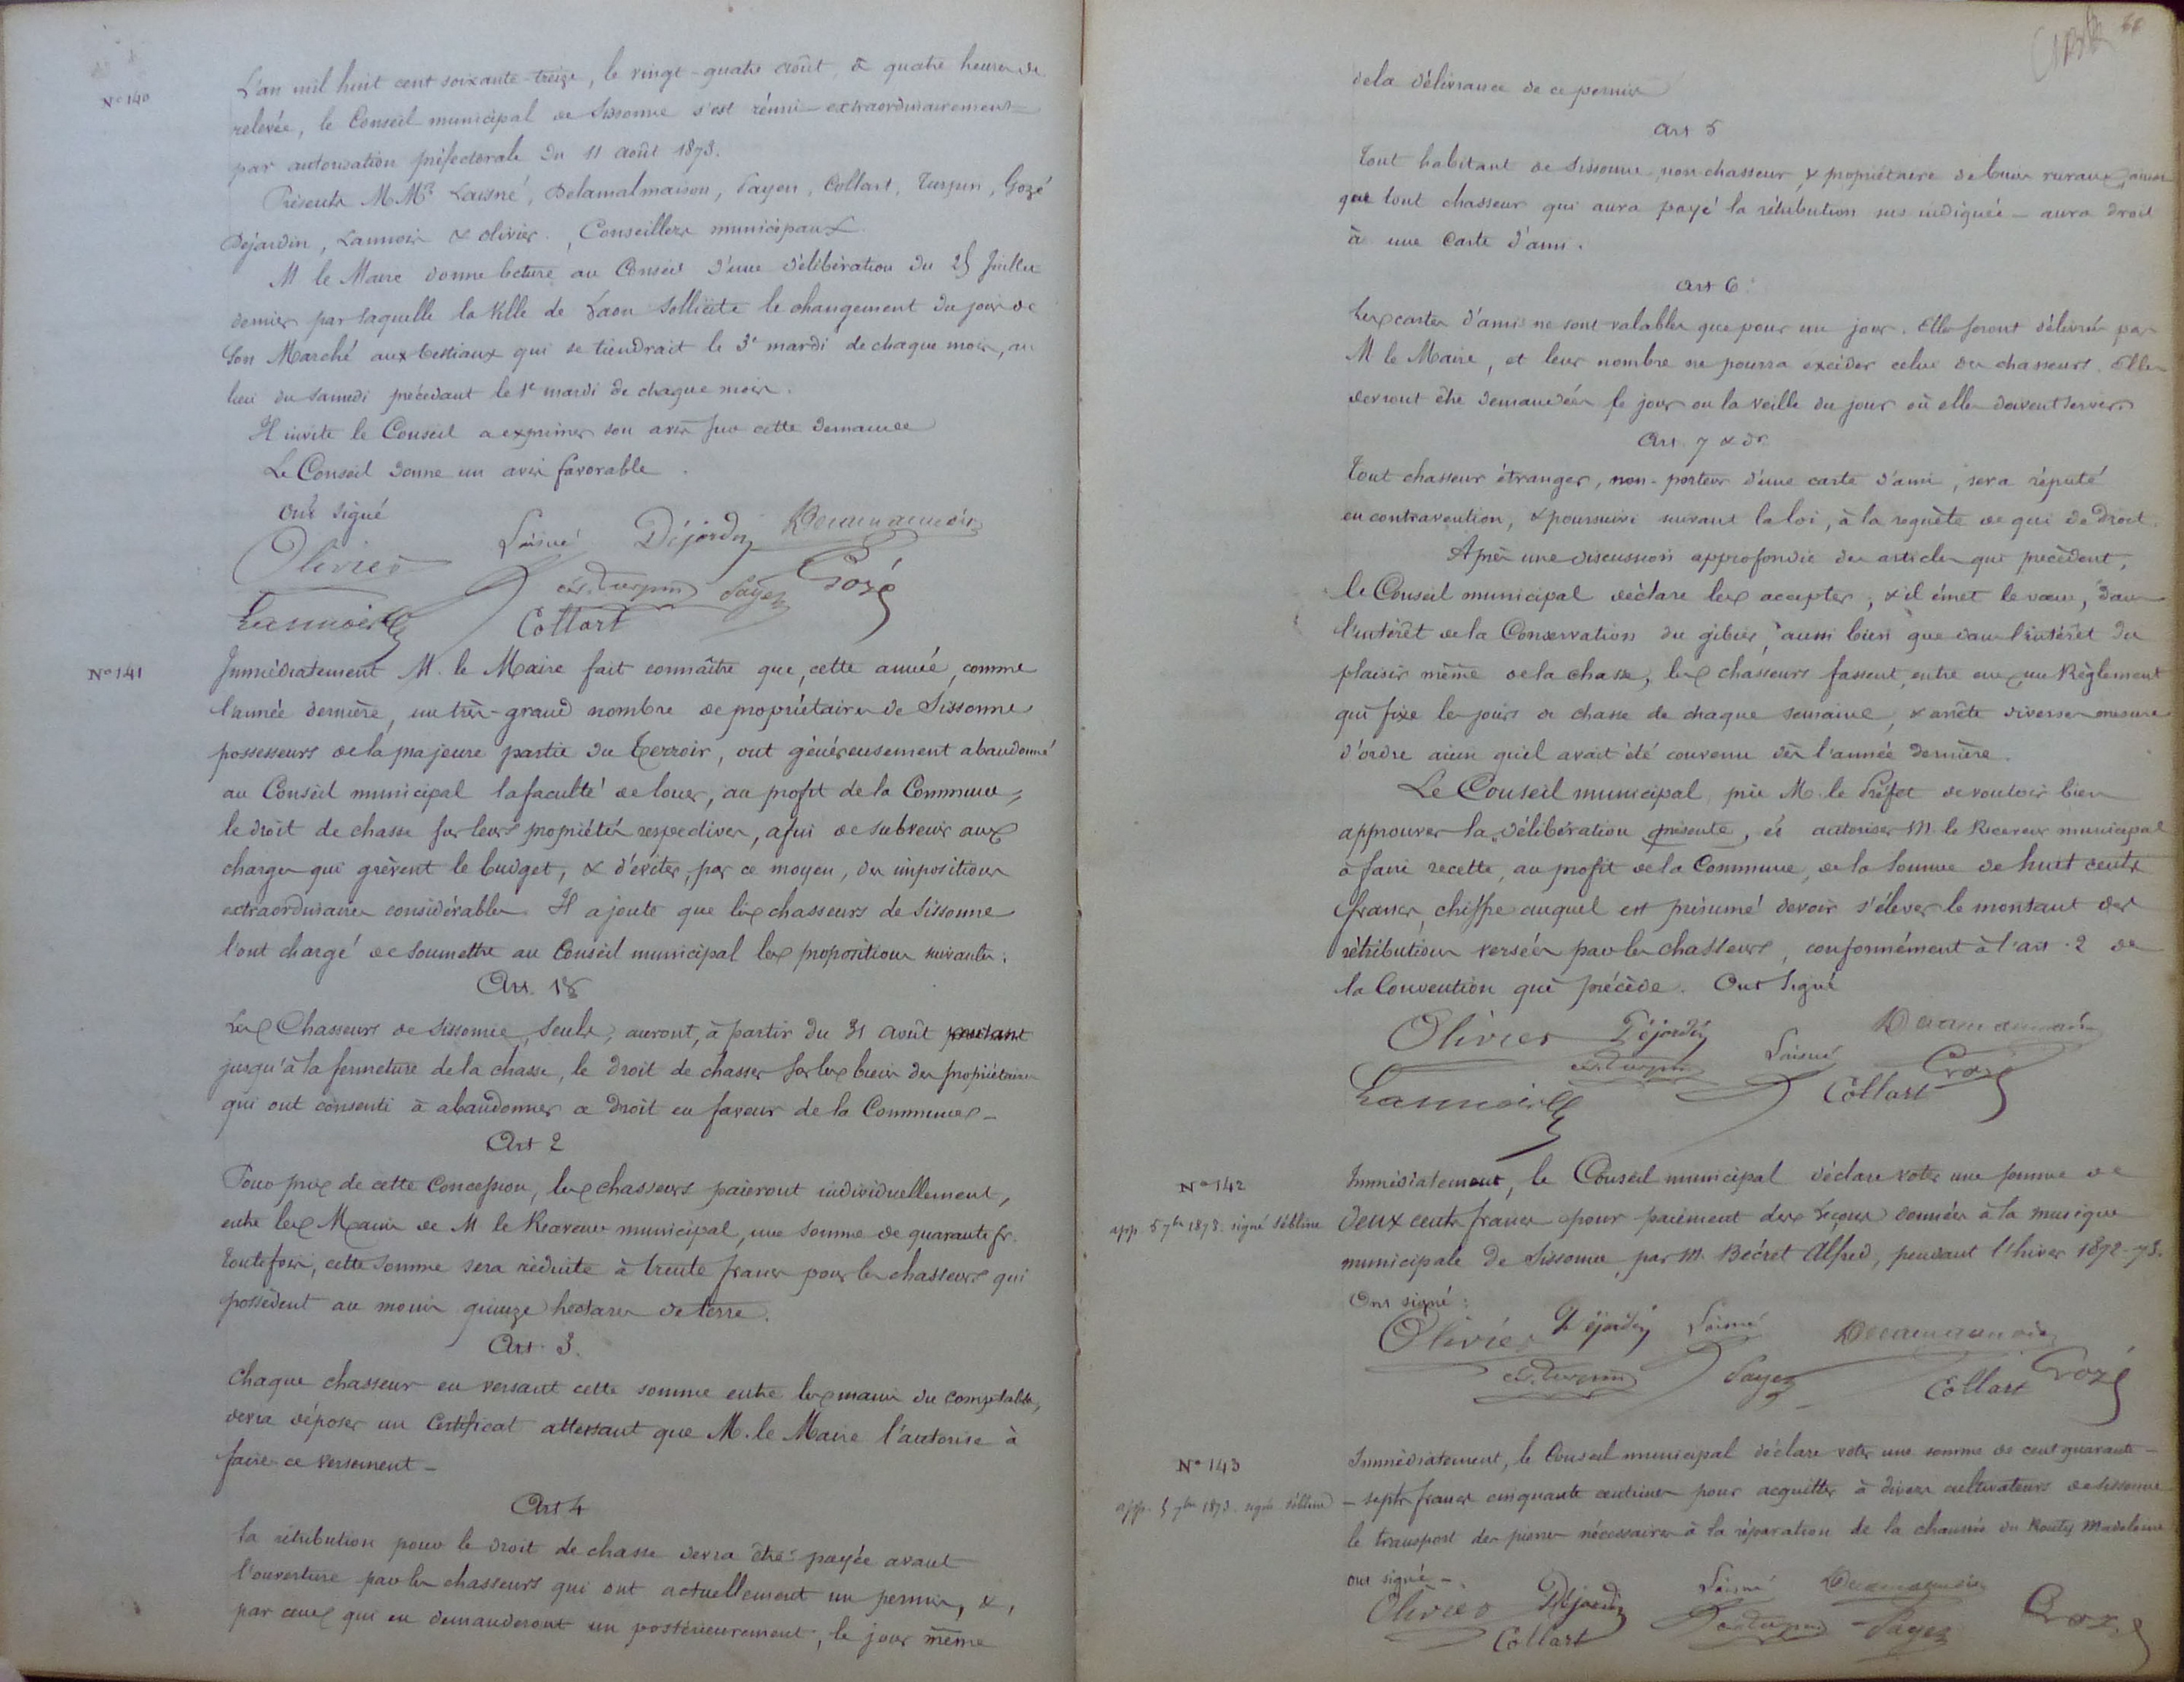 N° 140
L'an mil huit cent soixante-treize, le vingt-quatre août, à quatre heures de
relevée, le Conseil municipal de Sissonne s'est réuni - extraordinairement -
par autorisation préfectorale du 11 août 1873.
Présents M.Mrs Laisné, Delamalmaison, Payen, Collart, Turpin, Gozé
Déjardin, Lannois & Olivier, Conseillers municipaux.
M le Maire donne lecture au Conseil d'une délibération du 25 Juillet
dernier par laquelle la Ville de Laon sollicite le changement du jour de
son Marché aux bestiaux qui se tiendrait le 3e mardi de chaque mois, au
lieu du samedi précédant le 1e mardi de chaque mois.
Il invite le Conseil a exprimer son avis sur cette demande
Le Conseil donne un avis favorable.
Ont signé
Olivier Laisné Déjardin
Turpin Payen Gozé
Lannois Collart
N° 141
Immédiatement M. le Maire fait connaître que, cette année, comme
l'année dernière, un très-grand nombre de propriétaires de Sissonne
possesseurs de la majeure partie du terroir, ont généreusement abandonné
au Conseil municipal la faculté de louer, au profit de la Commune,
le droit de chasse sur leurs propriétés respectives, afin de subvenir aux
charges qui grèvent le budget, & d'éviter, par ce moyen, des impositions
extraordinaires considérables. Il ajoute que les chasseurs de Sissonne
l'ont chargé de soumettre au Conseil municipal les propositions suivantes:
Art. 1er
Les Chasseurs de Sissonne, seuls, auront, à partir du 31 août
jusqu'à la fermeture de la chasse, le droit de chasser sur les biens des propriétaires
qui ont consenti à abandonner ce droit en faveur de la Commune -
Art 2
Pour prix de cette Concession, les chasseurs paieront individuellement,
entre les Mains de M le Receveur municipal, une somme de quarante fr.
Toutefois, cette somme sera réduite à trente francs pour les chasseurs qui
possèdent au moins quinze hectares de terre.
Art. 3.
Chaque chasseur en versant cette somme entre les mains du comptable,
devra déposer un Certificat attestant que M. le Maire l'autorise à
faire ce versement -
Art 4
La rétribution pour le droit de chasse devra être payée avant
l'ouverture par les chasseurs qui ont actuellement un permis, &,
par ceux qui en demanderont un postérieurement, le jour même
de la délivrance de ce permis
Art 5
Tout habitant de Sissonne non chasseur, & propriétaire de biens ruraux, ainsi
que tout chasseur qui aura payé la rétribution sus indiquée - aura droit
à une Carte d'ami.
Art 6.
Les cartes d'amis ne sont valables que pour un jour. Elles seront délivrées par
M le Maire, et leur nombre ne pourra excéder celui des chasseurs. Elles
devront être demandées le jour ou la veille du jour où elles doivent servir.
Art. 7 & dr
Tout chasseur étranger, non-porteur d'une carte d'ami, sera réputé
en contravention, & poursuivi suivant la loi, à la requête de qui de droit.
Après une discussion approfondie des articles qui précèdent,
le Conseil municipal déclare les accepter, & il émet le vœu, dans
l'intérêt de la Conservation du gibier, aussi bien que dans l'intérêt du
plaisir même de la chasse, les chasseurs fassent entre eux un Règlement
qui fixe les jours de chasse de chaque semaine, & arrête diverses mesures
d'ordre ainsi qu'il avait été convenu dès l'année dernière.
Le Conseil municipal prie M. le Préfet de vouloir bien
approuver la délibération présente, et autoriser M. le Receveur municipal
à faire recette, au profit de la Commune, de la somme de huit cents
francs, chiffre auquel est présumé devoir s'élever le montant des
rétributions versées par les chasseurs, conformément à l'art. 2 de
la Convention qui précède. Ont signé
Olivier Déjardin
Turpin Laisné Gozé
Lannois Collart
N° 142
Immédiatement, le Conseil municipal déclare voter une somme de
app. 5 7bre 1873. signé Sébline
deux cents francs pour paiement des leçons données à la musique
municipale de Sissonne par M. Bécret Alfred, pendant l'hiver 1872-73.
Ont signé:
Olivier Déjardin Laisné
Turpin Payen Collart Gozé
N° 143
Immédiatement, le Conseil municipal déclare voter une somme de cent quarante-
app. 5 7bre 1873. signé Sébline
- sept francs cinquante centimes pour acquitter à divers cultivateurs de Sissonne
le transport des pierres nécessaires à la réparation de la chaussée du Routy Madeleine
ont signé -
Olivier Déjardin Laisné
Collart Turpin Payen Gozé